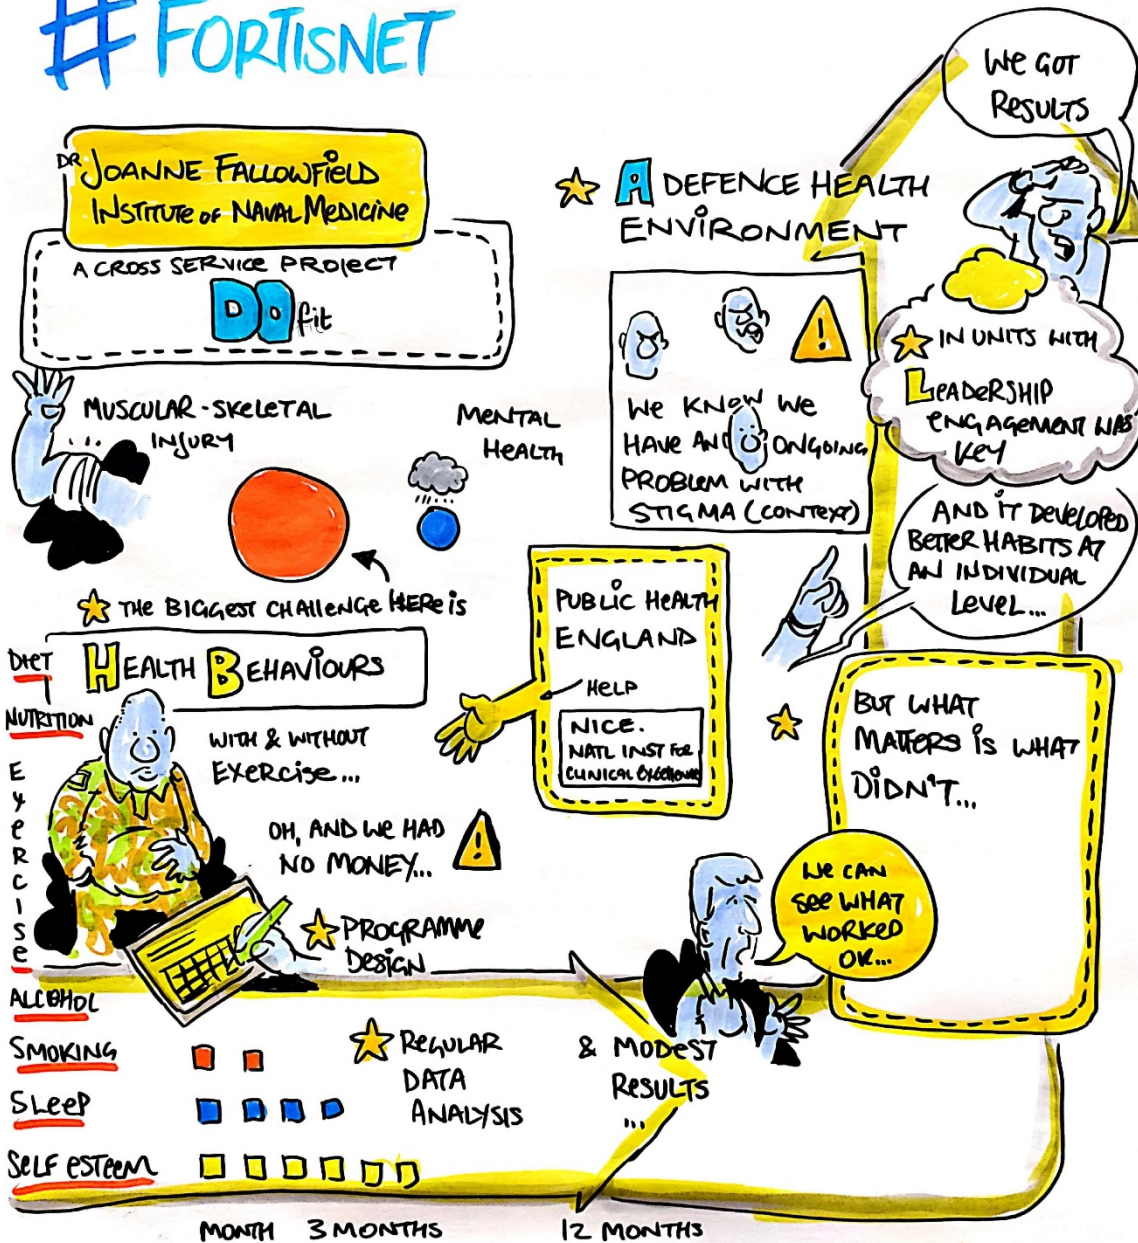 # FORTISNET
DR JOANNE FALLOWFIELD
INSTITUTE OF NAVAL MEDICINE
A CROSS SERVICE PROJECT
DO fit
MUSCULAR-SKELETAL
INJURY
MENTAL
HEALTH
THE BIGGEST CHALLENGE HERE IS
HEALTH BEHAVIOURS
DIET
NUTRITION
EXERCISE
ALCOHOL
SMOKING
SLEEP
SELF ESTEEM
WITH & WITHOUT
EXERCISE...
OH, AND WE HAD
NO MONEY...
PROGRAMME
DESIGN
REGULAR
DATA
ANALYSIS
& MODEST
RESULTS
...
MONTH 3 MONTHS 12 MONTHS
A DEFENCE HEALTH
ENVIRONMENT
WE KNOW WE
HAVE AN ONGOING
PROBLEM WITH
STIGMA (CONTEXT)
PUBLIC HEALTH
ENGLAND
HELP
NICE.
NATL INST FOR
CLINICAL EXCELLENCE
WE GOT
RESULTS
IN UNITS WITH
LEADERSHIP
ENGAGEMENT WAS
KEY
AND IT DEVELOPED
BETTER HABITS AT
AN INDIVIDUAL
LEVEL...
BUT WHAT
MATTERS IS WHAT
DIDN'T...
WE CAN
SEE WHAT
WORKED
OK...